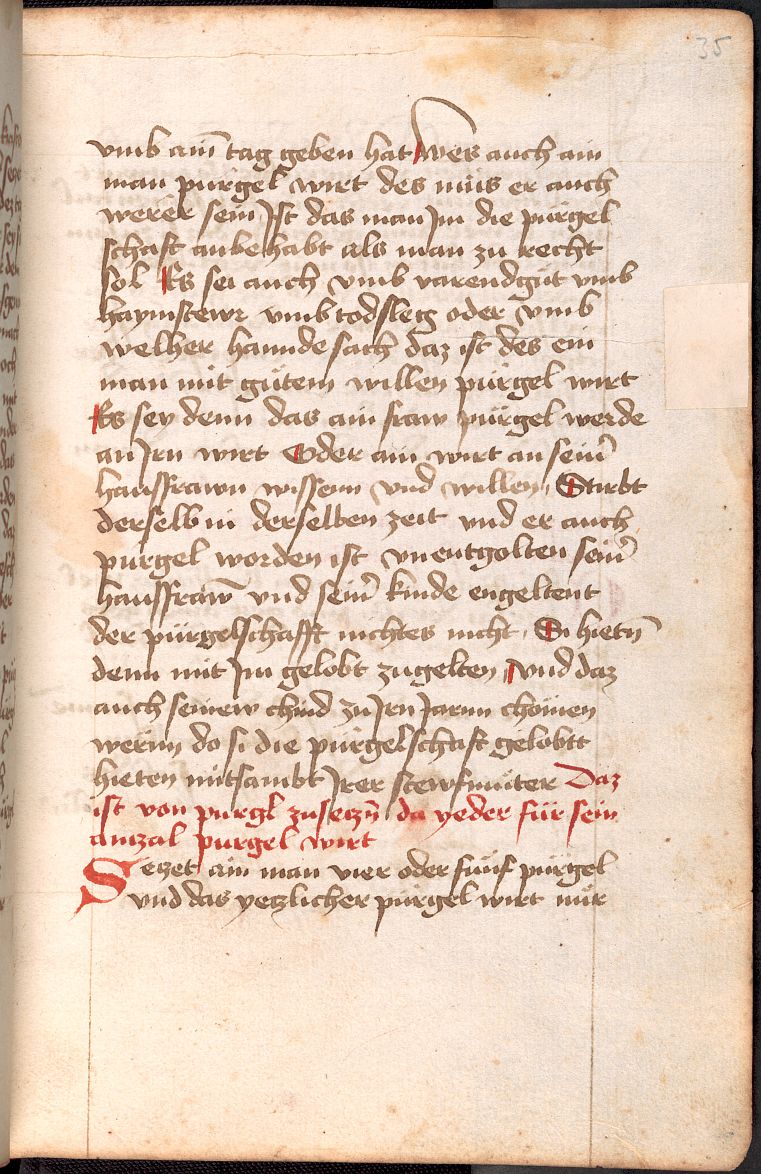 35
vmb ain̄ tag geben hat Wes auch ain
man pürgel wirt des müs er auch
werer sein Ist das man Im die pürgel
schaft anbehabt als man zu recht
sol Es sei auch vmb varendgüt vmb
haymstewr vmb todsleg oder vmb
welher hannde sach daz ist des ein
man mit gütem willen pürgel wirt
Es sey denn das ain fraw pürgel werde
an Irn wirt Oder ain wirt an sein̄
hausfrawn wissenn vnd willen Stirbt
derselb in derselben zeit vnd er auch
pürgel worden ist vnentgolten sein̄
hausfraw̄ vnd sein̄ kinde engeltent
der pürgelschafft nichtes nicht Si hietn̄
denn mit Im gelobt zugelten vnd daz
auch seinew chind zu Irn Jarnn chömen
wernn do si die pürgelschaft gelobtt
hieten mitsambt Irer stewfmüter Daz
ist von purgl zusetzn̄ da yeder für sein
antzal purgel wirt
Setzet ain man vier oder fünf pürgel
vnd das yetzlicher pürgel wirt nür